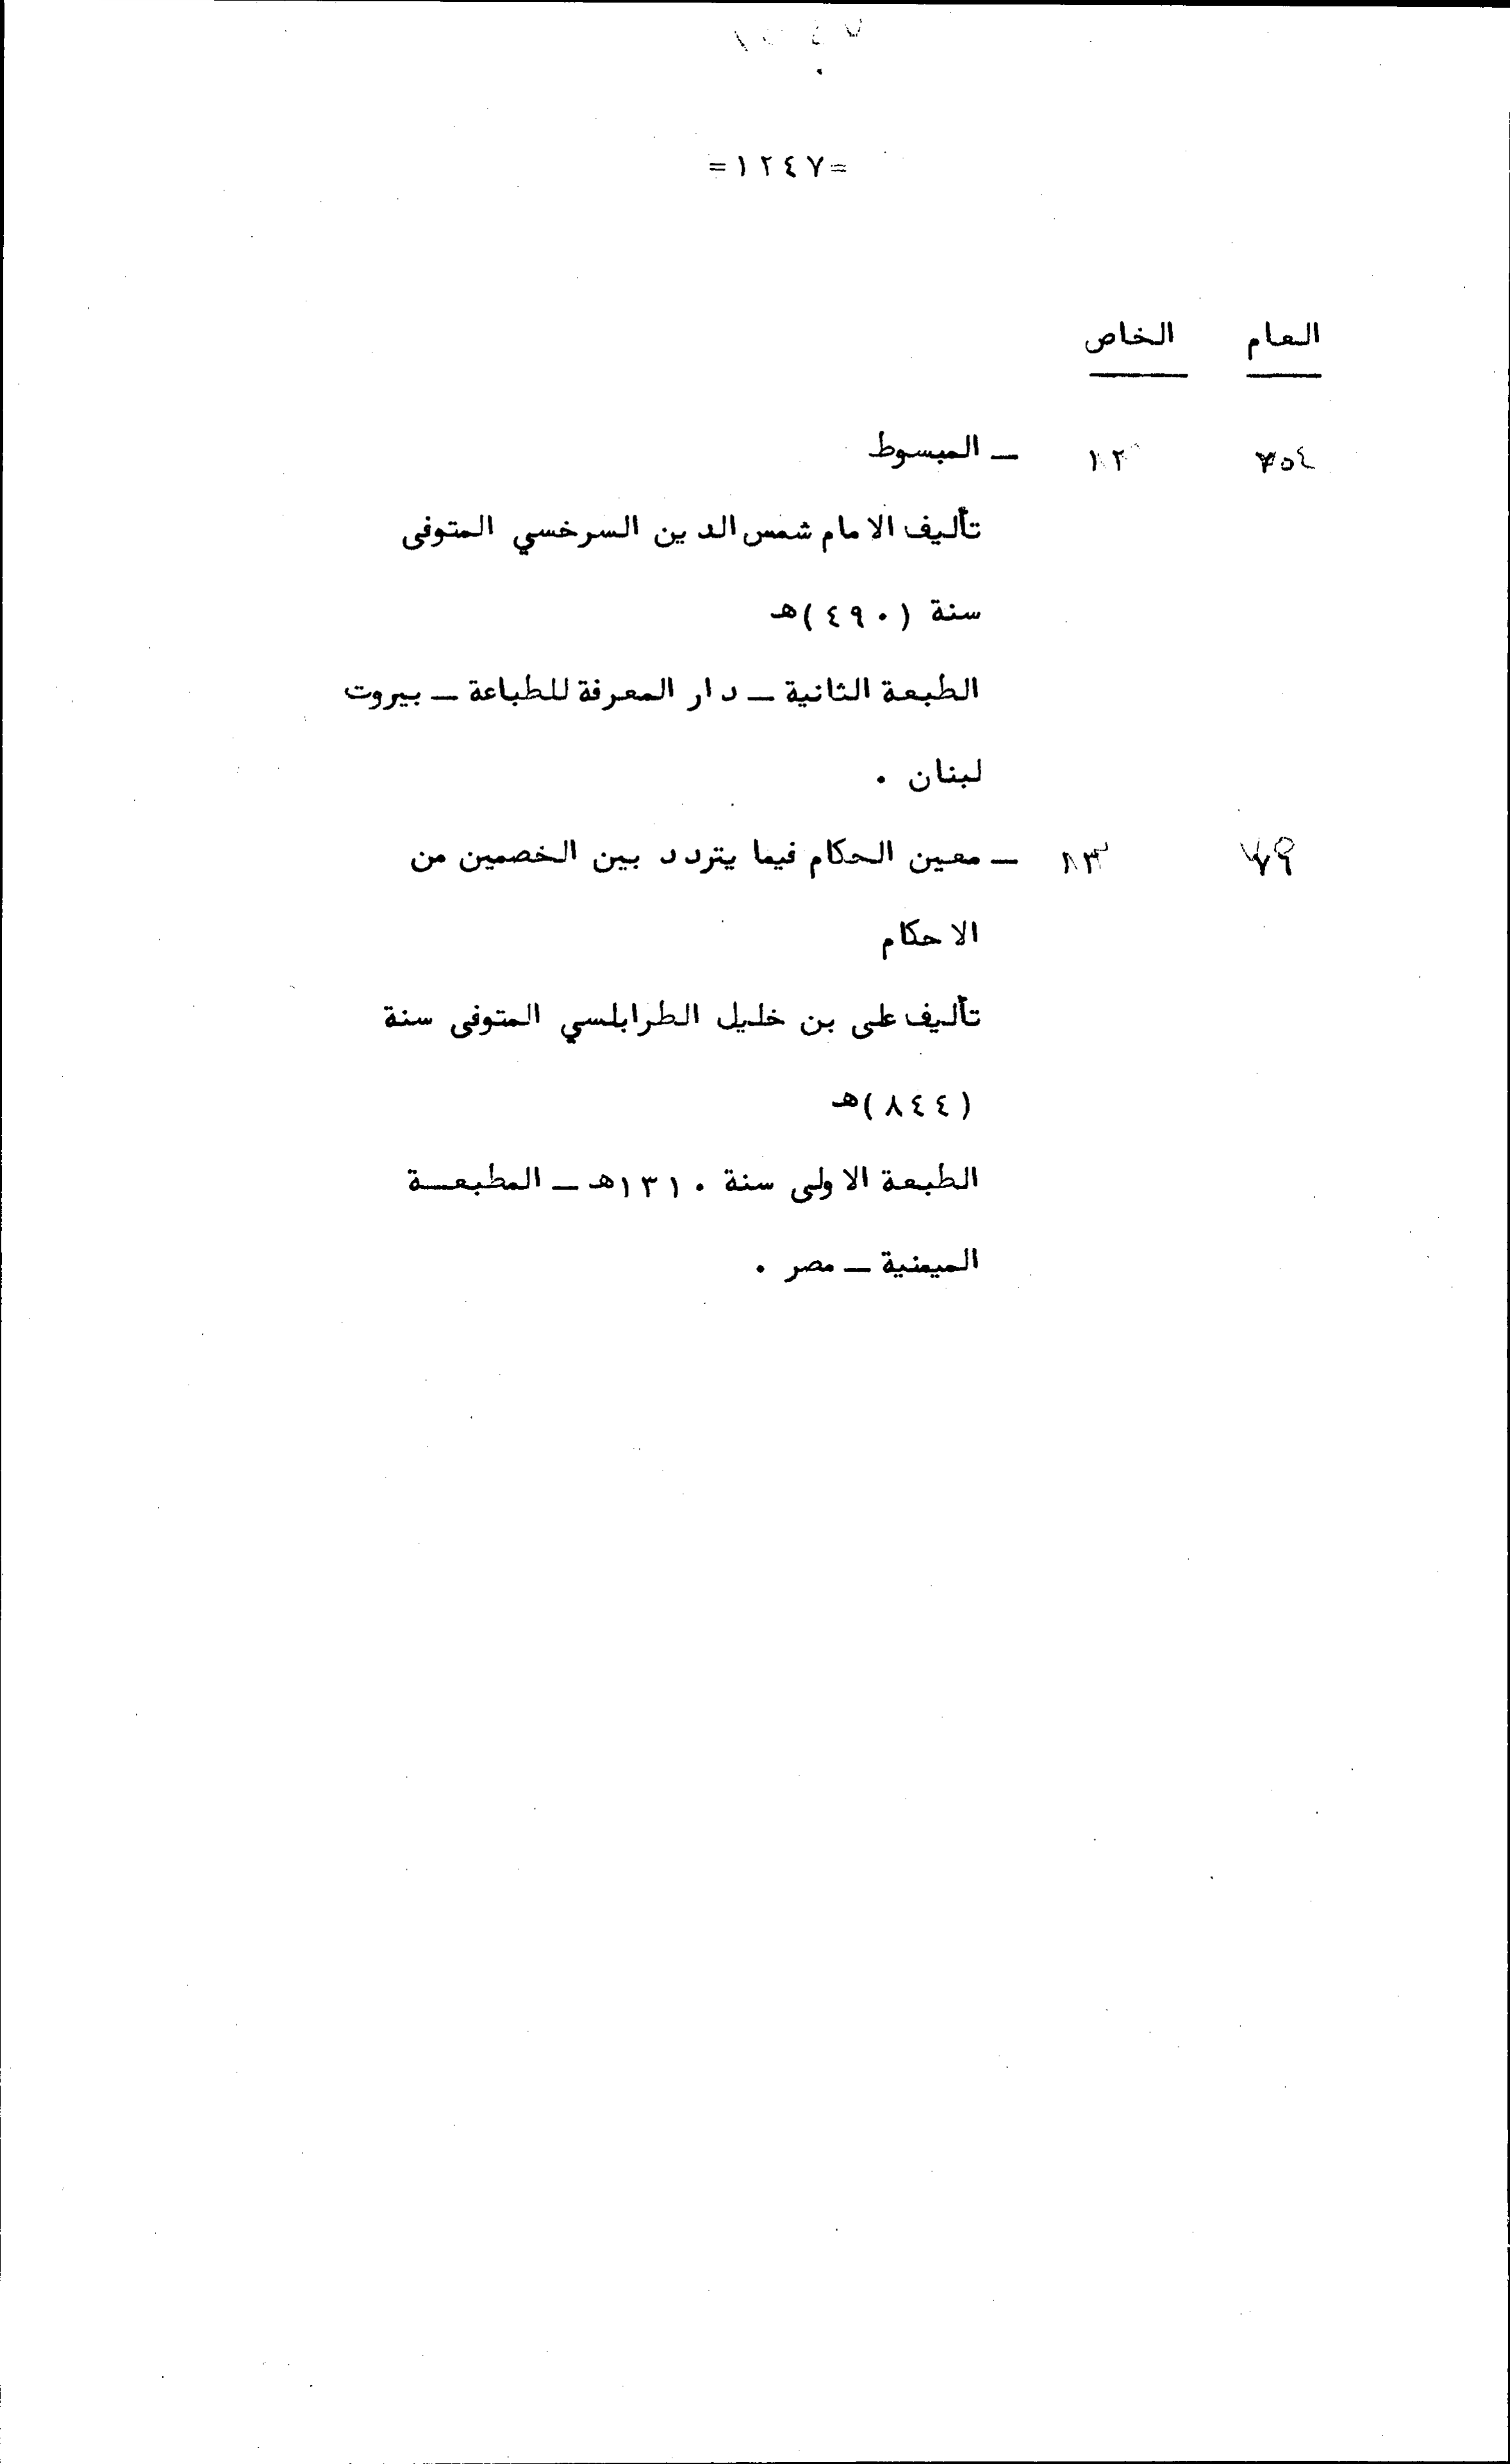 =١٢٤٧=
العام الخاص
١٢ ـ المبسوط
تأليف الامام شمس الدين السرخسي المتوفى
سنة (٤٩٠)هـ
الطبعة الثانية ـ دار المعرفة للطباعة ـ بيروت
لبنان .
١٣ ـ معين الحكام فيما يتردد بين الخصمين من
الاحكام
تأليف على بن خليل الطرابلسي المتوفى سنة
(٨٤٤)هـ
الطبعة الاولى سنة ١٣١٠هـ ـ المطبعـــة
الميمنية ـ مصر .